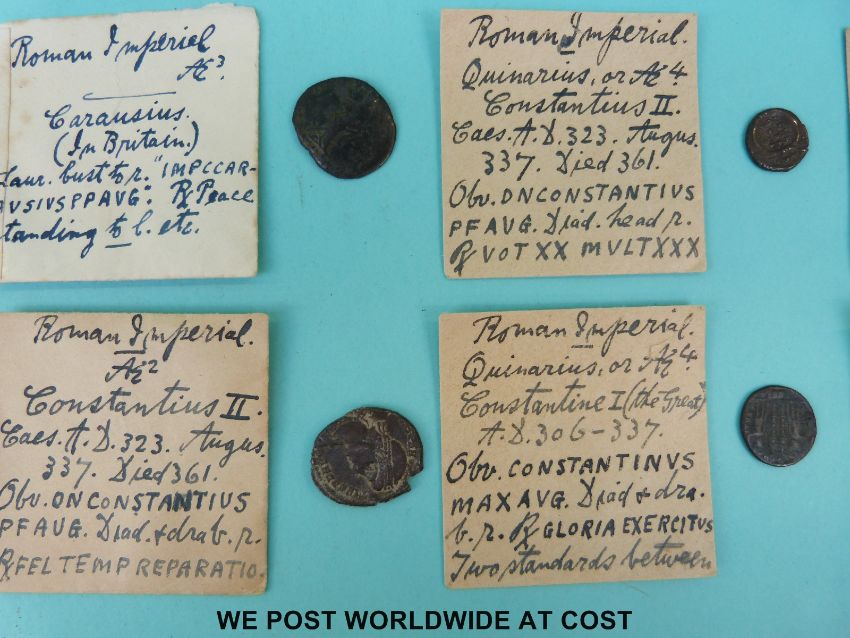 Roman Imperial
Æ3.
Carausius.
(In Britain.)
Laur. bust to r. "IMPCCAR-
AVSIVSPPAVG". R Peace
standing to l. etc.
Roman Imperial.
Quinarius, or Æ4.
Constantius II.
Caes. A.D. 323. Augus.
337. Died 361.
Obv. DNCONSTANTIVS
PFAVG. Diad. head r.
R VOT XX MVLTXXX
Roman Imperial.
Æ2
Constantius II.
Caes. A.D. 323. Augus.
337. Died 361.
Obv. DNCONSTANTIVS
PFAVG. Diad. & drab. r.
R FEL TEMP REPARATIO.
Roman Imperial.
Quinarius, or Æ4.
Constantine I (the Great)
A.D. 306-337.
Obv. CONSTANTINVS
MAXAVG. Diad & dra.
b. r. R GLORIA EXERCITVS
Two standards between
WE POST WORLDWIDE AT COST